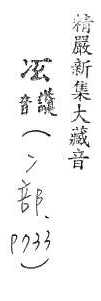 精嚴新集大藏音
讚音(冫部、P733)